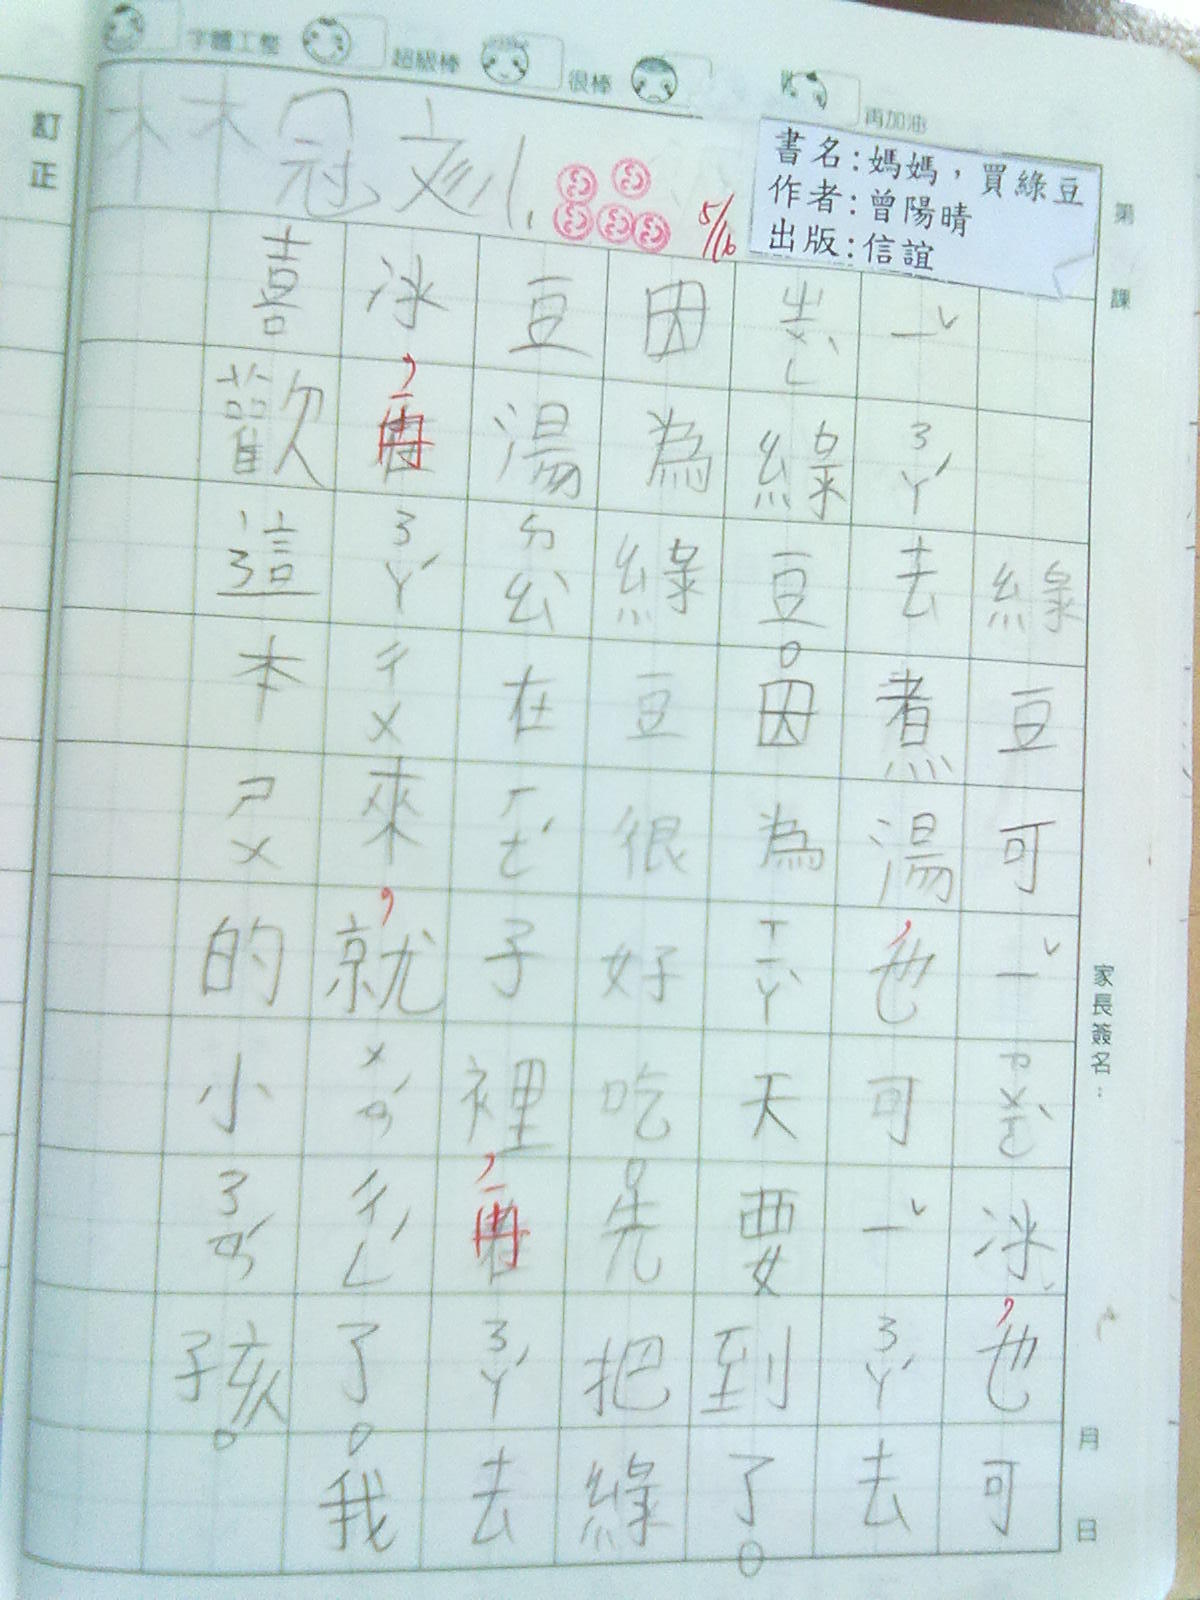 字體工整
超級棒
很棒
再加油
書名：媽媽，買綠豆
作者：曾陽晴
出版：信誼
林冠
5/16
第 課
綠豆可ㄧˇㄗㄨㄛˋ冰，也可
ㄧˇㄋㄚˊ去煮湯，也可ㄧˇㄋㄚˊ去
ㄓㄨㄥˋ綠豆。因為ㄒㄧㄚˋ天要到了。
因為綠豆很好吃先把綠
豆湯ㄉㄠˋ在ㄏㄜˊ子裡，再ㄋㄚˊ去
冰，再ㄋㄚˊㄔㄨ來，就ㄨㄢˊㄔㄥˊ了。我
喜歡這本ㄕㄨ的小ㄋㄢˊ孩。
家長簽名：
月 日
訂正